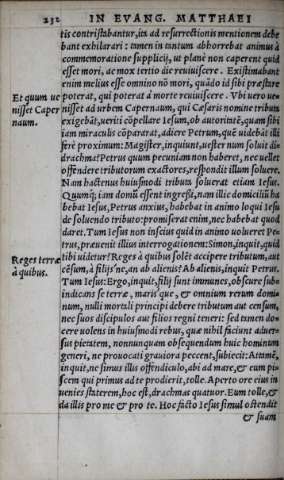 232 IN EVANG. MATTHAEI
tis contristabantur, ita ad resurrectionis mentionem debe
bant exhilarari: tamen in tantum abhorrebat animus à
commemoratione supplicij, ut planè non caperent quid
esset mori, ac mox tertio die reuiuiscere. Existimabant
enim melius esse omnino nō mori, quādo id sibi præstare
poterat, qui poterat à morte reuiuiscere. Vbi uero ue-
Et quum ue
nisset Caper
naum.
nisset ad urbem Capernaum, qui Cæsaris nomine tributū
exigebāt, ueriti cōpellare Iesum, ob autoritatē, quam sibi
iam miraculis cōpararat, adiere Petrum, quē uidebāt illi
ferè proximum: Magister, inquiunt, uester num soluit di=
drachma? Petrus quum pecuniam non haberet, nec uellet
offendere tributorum exactores, respondit illum soluere.
Nam hactenus huiusmodi tributa soluerat etiam Iesus.
Quumq; iam domū esset ingressus, nam illic domiciliū ha
bebat Iesus, Petrus anxius, habebat in animo loqui Iesu
de soluendo tributo: promiserat enim, nec habebat quod
daret. Tum Iesus non inscius quid in animo uolueret Pe-
trus, præuenit illius interrogationem: Simon, inquit, quid
Reges terræ
à quibus.
tibi uidetur? Reges à quibus solēt accipere tributum, aut
cēsum, à filijs ne, an ab alienis? Ab alienis, inquit Petrus.
Tum Iesus: Ergo, inquit, filij sunt immunes, obscure sub=
indicans se terræ, maris que, & omnium rerum domi=
num, nulli mortali principi debere tributum aut censum,
nec suos discipulos aut filios regni teneri: sed tamen do=
cere uolens in huiusmodi rebus, quæ nihil faciunt aduer=
sus pietatem, nonnunquam obsequendum huic hominum
generi, ne prouocati grauiora peccent, subiecit: Attamē,
inquit, ne simus illis offendiculo, abi ad mare, & eum pi=
scem qui primus ad te prodierit, tolle. Aperto ore eius in
uenies staterem, hoc est, drachmas quatuor. Eum tolle, &
da illis pro me & pro te. Hoc facto Iesus simul ostendit
& suam